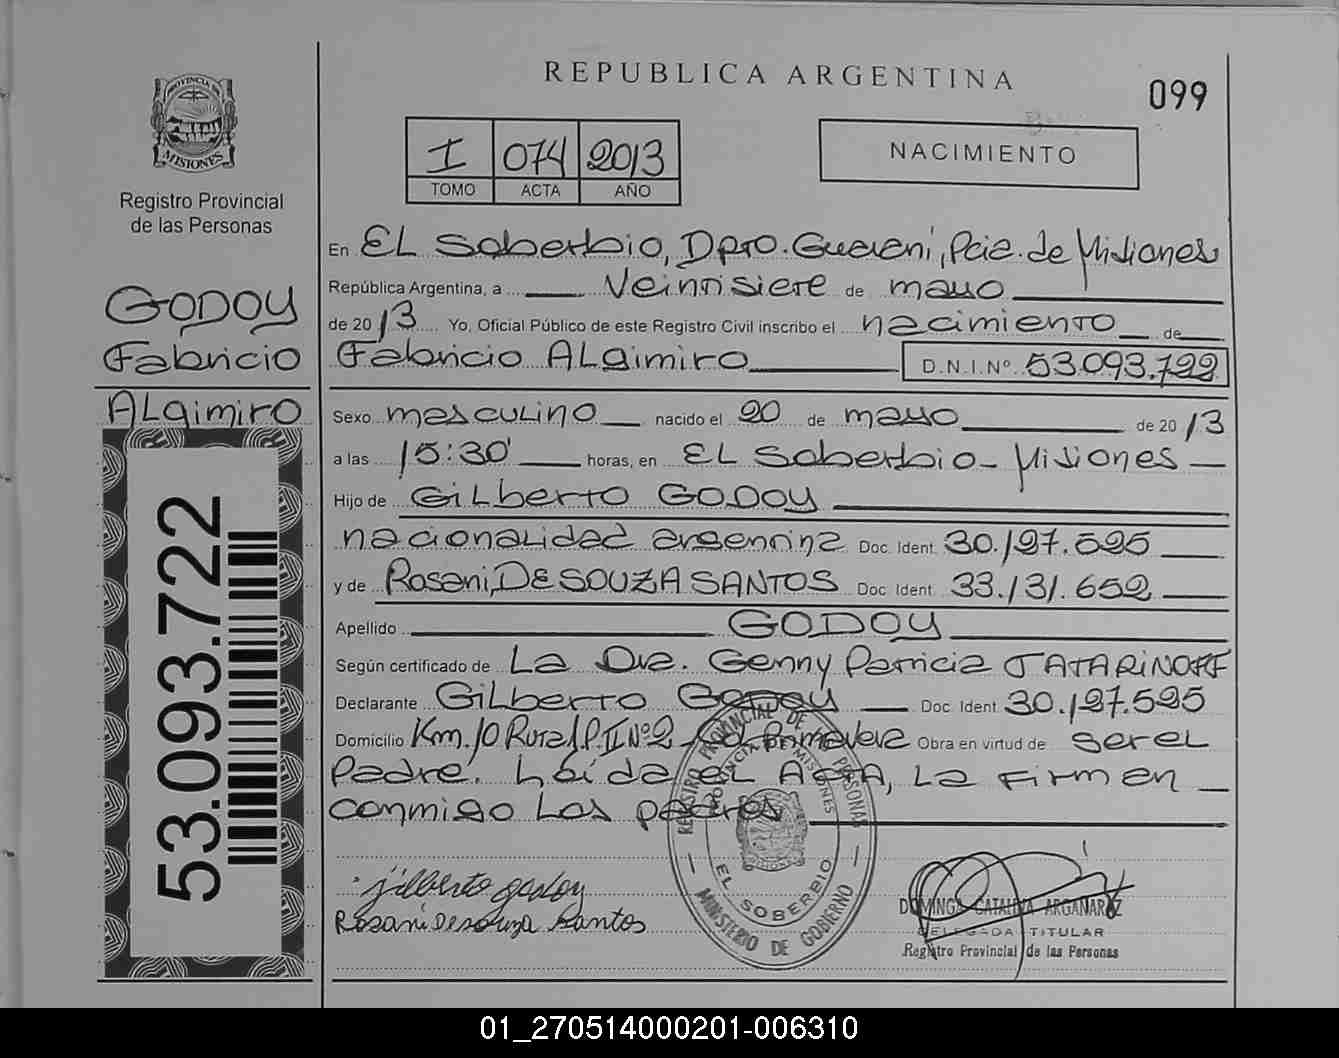 REPUBLICA ARGENTINA
099
PROVINCIA DE
MISIONES
Registro Provincial
de las Personas
I 074 2013
TOMO ACTA AÑO
NACIMIENTO
GODOY
Fabricio
ALgimiro
53.093.722
En EL Soberbio, Dpto. Guarani, Pcia. de Misiones
República Argentina, a Veintisiete de mayo
de 2013 Yo, Oficial Público de este Registro Civil inscribo el nacimiento de
Fabricio ALgimiro D.N.I.Nº 53.093.722
Sexo masculino nacido el 20 de mayo de 2013
a las 15:30' horas, en EL Soberbio - Misiones
Hijo de GiLberto GODOY
nacionalidad argentina Doc. Ident. 30.197.595
y de Rosani, DE SOUZA SANTOS Doc. Ident. 33.131.652
Apellido GODOY
Según certificado de La Dra. Genny Patricia TATARINOFF
Declarante GiLberto Godoy Doc. Ident. 30.197.595
Domicilio Km. 10 Rural P. II Nº 2 - Col. Primavera Obra en virtud de ser el
Padre. Leída el ACTA, La Firman
conmigo Los padres
jilberto godoy
Rosani De souza Santos
REGISTRO PROVINCIAL DE LAS PERSONAS
PROVINCIA DE MISIONES
EL SOBERBIO
MINISTERIO DE GOBIERNO
DOMINGA CATALINA ARGAÑARAZ
DELEGADA TITULAR
Registro Provincial de las Personas
01_270514000201-006310